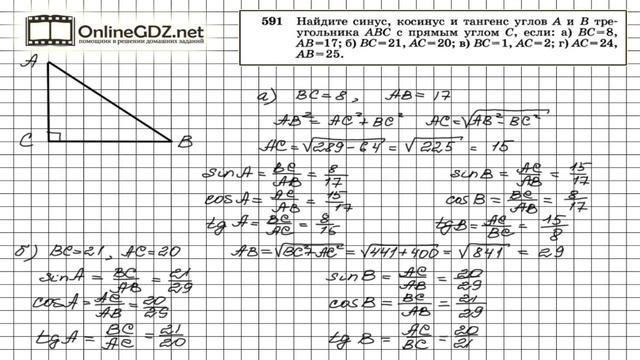 OnlineGDZ.net
помощники в решении домашних заданий
591 Найдите синус, косинус и тангенс углов A и B тре-
угольника ABC с прямым углом C, если: а) BC=8,
AB=17; б) BC=21, AC=20; в) BC=1, AC=2; г) AC=24,
AB=25.
A
C
B
а) BC=8, AB=17
AB²=AC²+BC² AC=√AB²-BC²
AC=√289-64=√225=15
sinA=BC/AB=8/17 sinB=AC/AB=15/17
cosA=AC/AB=15/17 cosB=BC/AB=8/17
tgA=BC/AC=8/15 tgB=AC/BC=15/8
б) BC=21, AC=20 AB=√BC²+AC²=√441+400=√841=29
sinA=BC/AB=21/29 sinB=AC/AB=20/29
cosA=AC/AB=20/29 cosB=BC/AB=21/29
tgA=BC/AC=21/20 tgB=AC/BC=20/21